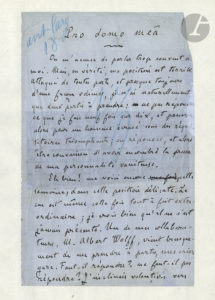 Pro domo meâ
On m'accuse de parler trop souvent de
moi. Mais, en vérité, ma position est terrible
attaqué de toute part, et presque toujours
d'une façon odieuse, je n'ai naturellement
que deux partis à prendre : ne pas répondre
ce que je fais neuf fois sur dix, et passer
alors pour un homme écrasé sous des réqui-
sitoires triomphants ; ou répondre, et alors
être convaincu d'avoir enivré la
de ma personnalité vaniteuse.
Eh bien ! me voici encore
dans cette position délicate. Le
cas est même cette fois tout à fait extra
ordinaire ; je crois bien qu'il ne s'est
jamais présenté. Un de mes collabora-
teurs, M. Albert Wolff, vient brusque-
ment de me prendre à partie, sans crier
gare. Faut-il répondre ? ne faut-il pas
répondre ? J'inclinais volontiers vers